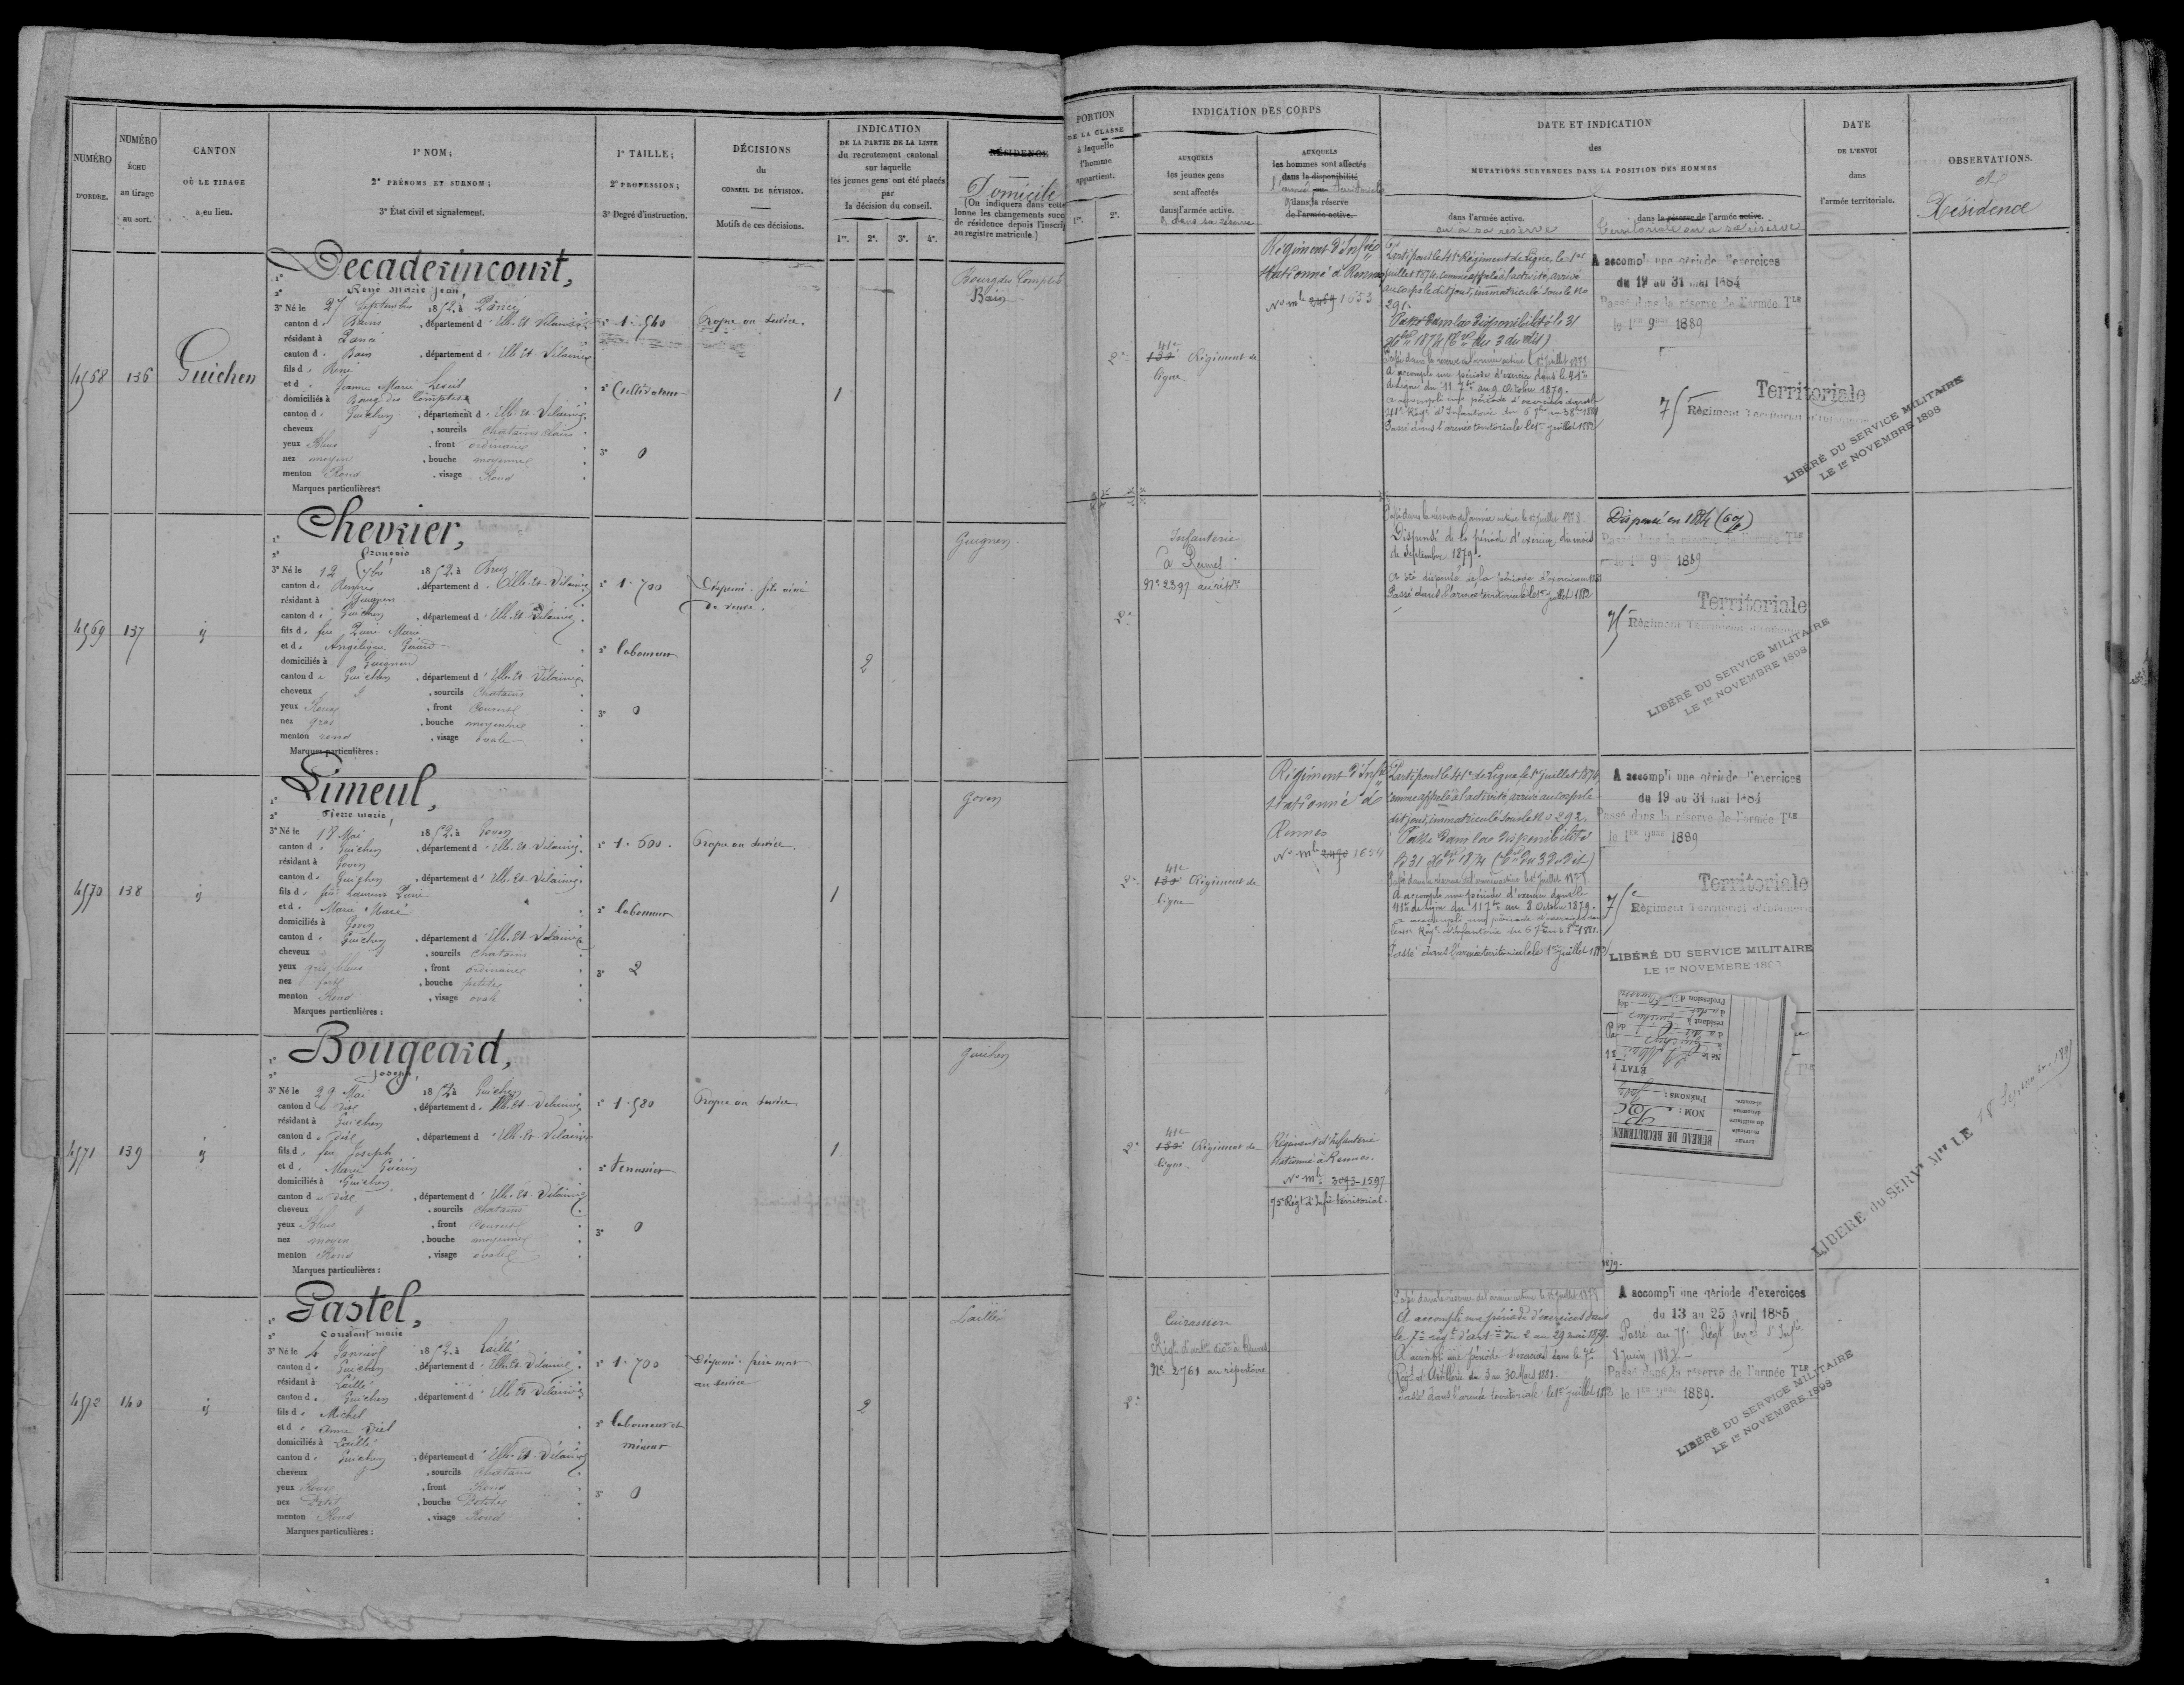 NUMÉRO
D'ORDRE.
NUMÉRO
ÉCHU
au tirage
au sort.
CANTON
OÙ LE TIRAGE
a eu lieu.
1° NOM;
2° PRÉNOMS ET SURNOM;
3° État civil et signalement.
1° TAILLE;
2° PROFESSION;
3° Degré d'instruction.
DÉCISIONS
du
CONSEIL DE RÉVISION.
Motifs de ces décisions.
INDICATION
DE LA PARTIE DE LA LISTE
du recrutement cantonal
sur laquelle
les jeunes gens ont été placés
par
la décision du conseil.
1re. 2e. 3e. 4e.
RÉSIDENCE
Domicile
(On indiquera dans cette
lonne les changements succe
de résidence depuis l'inscrip
au registre matricule.)
4568
136
Guichen
1° Decaderincourt,
2° René Marie Jean
3° Né le 27 Septembre 1852, à Pancé
canton de Bain, département d'Ille-et-Vilaine
résidant à Pancé
canton de Bain, département d'Ille-et-Vilaine
fils de René
et de Jeanne Marie
domiciliés à Bourg des Comptes
canton de Guichen, département d'Ille-et-Vilaine
cheveux , sourcils chatains clairs
yeux Bleus, front ordinaire
nez moyen, bouche moyenne
menton Rond, visage Rond
Marques particulières :
1° 1.540
2° Cultivateur
3° 0
Propre au service.
1
Bourg des Comptes
Bain
4569
137
1° Chevrier,
2° François
3° Né le 12 7bre 1852, à Bruz
canton de Rennes, département d'Ille-et-Vilaine
résidant à Guignen
canton de Guichen, département d'Ille-et-Vilaine
fils de feu Marie
et de Angélique Gérard
domiciliés à Guignen
canton de Guichen, département d'Ille-et-Vilaine
cheveux , sourcils chatains
yeux Roux, front couvert
nez gros, bouche moyenne
menton rond, visage ovale
Marques particulières :
1° 1.700
2° laboureur
3° 0
Dispensé. fils aîné
de veuve.
2
Guignen
4570
138
1° Limeul,
2° Pierre marie,
3° Né le 18 Mai 1852, à Goven
canton de Guichen, département d'Ille-et-Vilaine
résidant à Goven
canton de Guichen, département d'Ille-et-Vilaine
fils de feu Laurent
et de Marie Macé
domiciliés à Goven
canton de Guichen, département d'Ille-et-Vilaine
cheveux , sourcils chatains
yeux gris bleus, front ordinaire
nez fort, bouche petite
menton Rond, visage ovale
Marques particulières :
1° 1.600.
2° laboureur
3° 2
Propre au service.
1
Goven
4571
139
1° Bougeard,
2° Joseph,
3° Né le 29 Mai 1852, à Guichen
canton de dit, département d'Ille-et-Vilaine
résidant à Guichen
canton de dit, département d'Ille-et-Vilaine
fils de feu Joseph
et de Marie Guérin
domiciliés à Guichen
canton de dit, département d'Ille-et-Vilaine
cheveux , sourcils chatains
yeux Bleus, front couvert
nez moyen, bouche moyenne
menton Rond, visage ovale
Marques particulières :
1° 1.580
3° 0
Propre au service
1
Guichen
4572
140
1° Gastel,
2° Constant marie
3° Né le 4 Janvier 1852, à Laillé
canton de Guichen, département d'Ille-et-Vilaine
résidant à Laillé
canton de Guichen, département d'Ille-et-Vilaine
fils de Michel
et de Anne
domiciliés à Laillé
canton de Guichen, département d'Ille-et-Vilaine
cheveux , sourcils chatains
yeux Roux, front Rond
nez Petit, bouche Petite
menton Rond, visage Rond
Marques particulières :
1° 1.700
2° laboureur et
mineur
3° 0
Dispensé. frère mort
au service
2
Laillé
PORTION
DE LA CLASSE
à laquelle
l'homme
appartient.
1re. 2e.
INDICATION DES CORPS
AUXQUELS
les jeunes gens
sont affectés
dans l'armée active.
& dans sa réserve
AUXQUELS
les hommes sont affectés
dans la disponibilité
l'armée ou territoriale
& dans la réserve
de l'armée active.
DATE ET INDICATION
des
MUTATIONS SURVENUES DANS LA POSITION DES HOMMES
dans l'armée active.
ou à sa réserve
dans la réserve de l'armée active.
Territoriale ou à sa réserve
DATE
DE L'ENVOI
dans
l'armée territoriale.
OBSERVATIONS.
et
Résidence
2e
41e
130e Régiment de
ligne
Régiment d'Infrie
stationné à Rennes
No mle 2469 1653
Parti pour le 41e Régiment de Ligne, le 1er
juillet 1874, comme appelé à l'activité, arrivé
au corps le dit jour, immatriculé sous le No
291.
Passé dans la disponibilité le 31
Xbre 1874 (Con du 3 du dit)
Passé dans la réserve de l'armée active le 1er juillet 1878
A accompli une période d'exercice dans le 41e
de ligne du 11 7bre au 9 Octobre 1879.
a accompli une période d'exercices dans le
41e Régt d'Infanterie du 6 7bre au 3 8bre 1881
Passé dans l'armée territoriale le 1er juillet 1882
A accompli une période d'exercices
du 19 au 31 mai 1884
Passé dans la réserve de l'armée Tle
le 1er 9bre 1889
Territoriale
75e Régiment Territorial d'Infanterie
LIBÉRÉ DU SERVICE MILITAIRE
LE 1er NOVEMBRE 1898
2e
Infanterie
à Rennes
No 2397 au rétre
Passé dans la réserve de l'armée active le 1er juillet 1878
Dispensé de la période d'exercice du mois
de Septembre 1879.
A été dispensé de la période d'exercices en 1881
Passé dans l'armée territoriale le 1er juillet 1882
Dispensé en 1884
Passé dans la réserve de l'armée Tle
le 1er 9 1889
Territoriale
75e Régiment Territorial d'Infanterie
LIBÉRÉ DU SERVICE MILITAIRE
LE 1er NOVEMBRE 1898
2e
41e
130e Régiment de
ligne
Régiment d'Infie
stationné à
Rennes
No mle 2470 1654
Parti pour le 41e de Ligne, le 1er juillet 1874,
comme appelé à l'activité, arrivé au corps le
dit jour, immatriculé sous le No 292.
Passé dans la disponibilité
le 31 Xbre 1874 (Con du 3 du dit)
Passé dans la réserve de l'armée active le 1er juillet 1878
A accompli une période d'exercice dans le
41e de ligne du 11 7bre au 8 Octobre 1879.
a accompli une période d'exercices dans
le 41e Régt d'Infanterie du 6 7bre au 3 8bre 1881.
Passé dans l'armée territoriale le 1er juillet 1882
A accompli une période d'exercices
du 19 au 31 mai 1884
Passé dans la réserve de l'armée Tle
le 1er 9bre 1889
Territoriale
75e Régiment Territorial d'Infanterie
LIBÉRÉ DU SERVICE MILITAIRE
LE 1er NOVEMBRE 1898
2e
41e
130e Régiment de
ligne.
Régiment d'Infanterie
stationné à Rennes.
No mle 3093 1597
75e Régt d'Infie territorial.
BUREAU DE RECRUTEMEN
NOM :
PRÉNOMS :
ÉTAT
Né le
résidant à
Profession d
1879.
LIBÉRÉ du SERVe Mre LE 18 Septembre 1891
2e
Cuirassiers
Régt d'artie à Rennes
No 2761 au répertoire
Passé dans la réserve de l'armée active le 1er juillet 1878
A accompli une période d'exercices dans
le 7e régt d'artie du 2 au 29 mai 1879.
A accompli une période d'exercices dans le 7e
Régt d'Artillerie du 3 au 30 Mars 1881.
Passé dans l'armée territoriale le 1er juillet 1882
A accompli une période d'exercices
du 13 au 25 Avril 1885
Passé au 75e Régt terral d'Infie
8 Juin 1887.
Passé dans la réserve de l'armée Tle
le 1er 9bre 1889.
LIBÉRÉ DU SERVICE MILITAIRE
LE 1er NOVEMBRE 1898